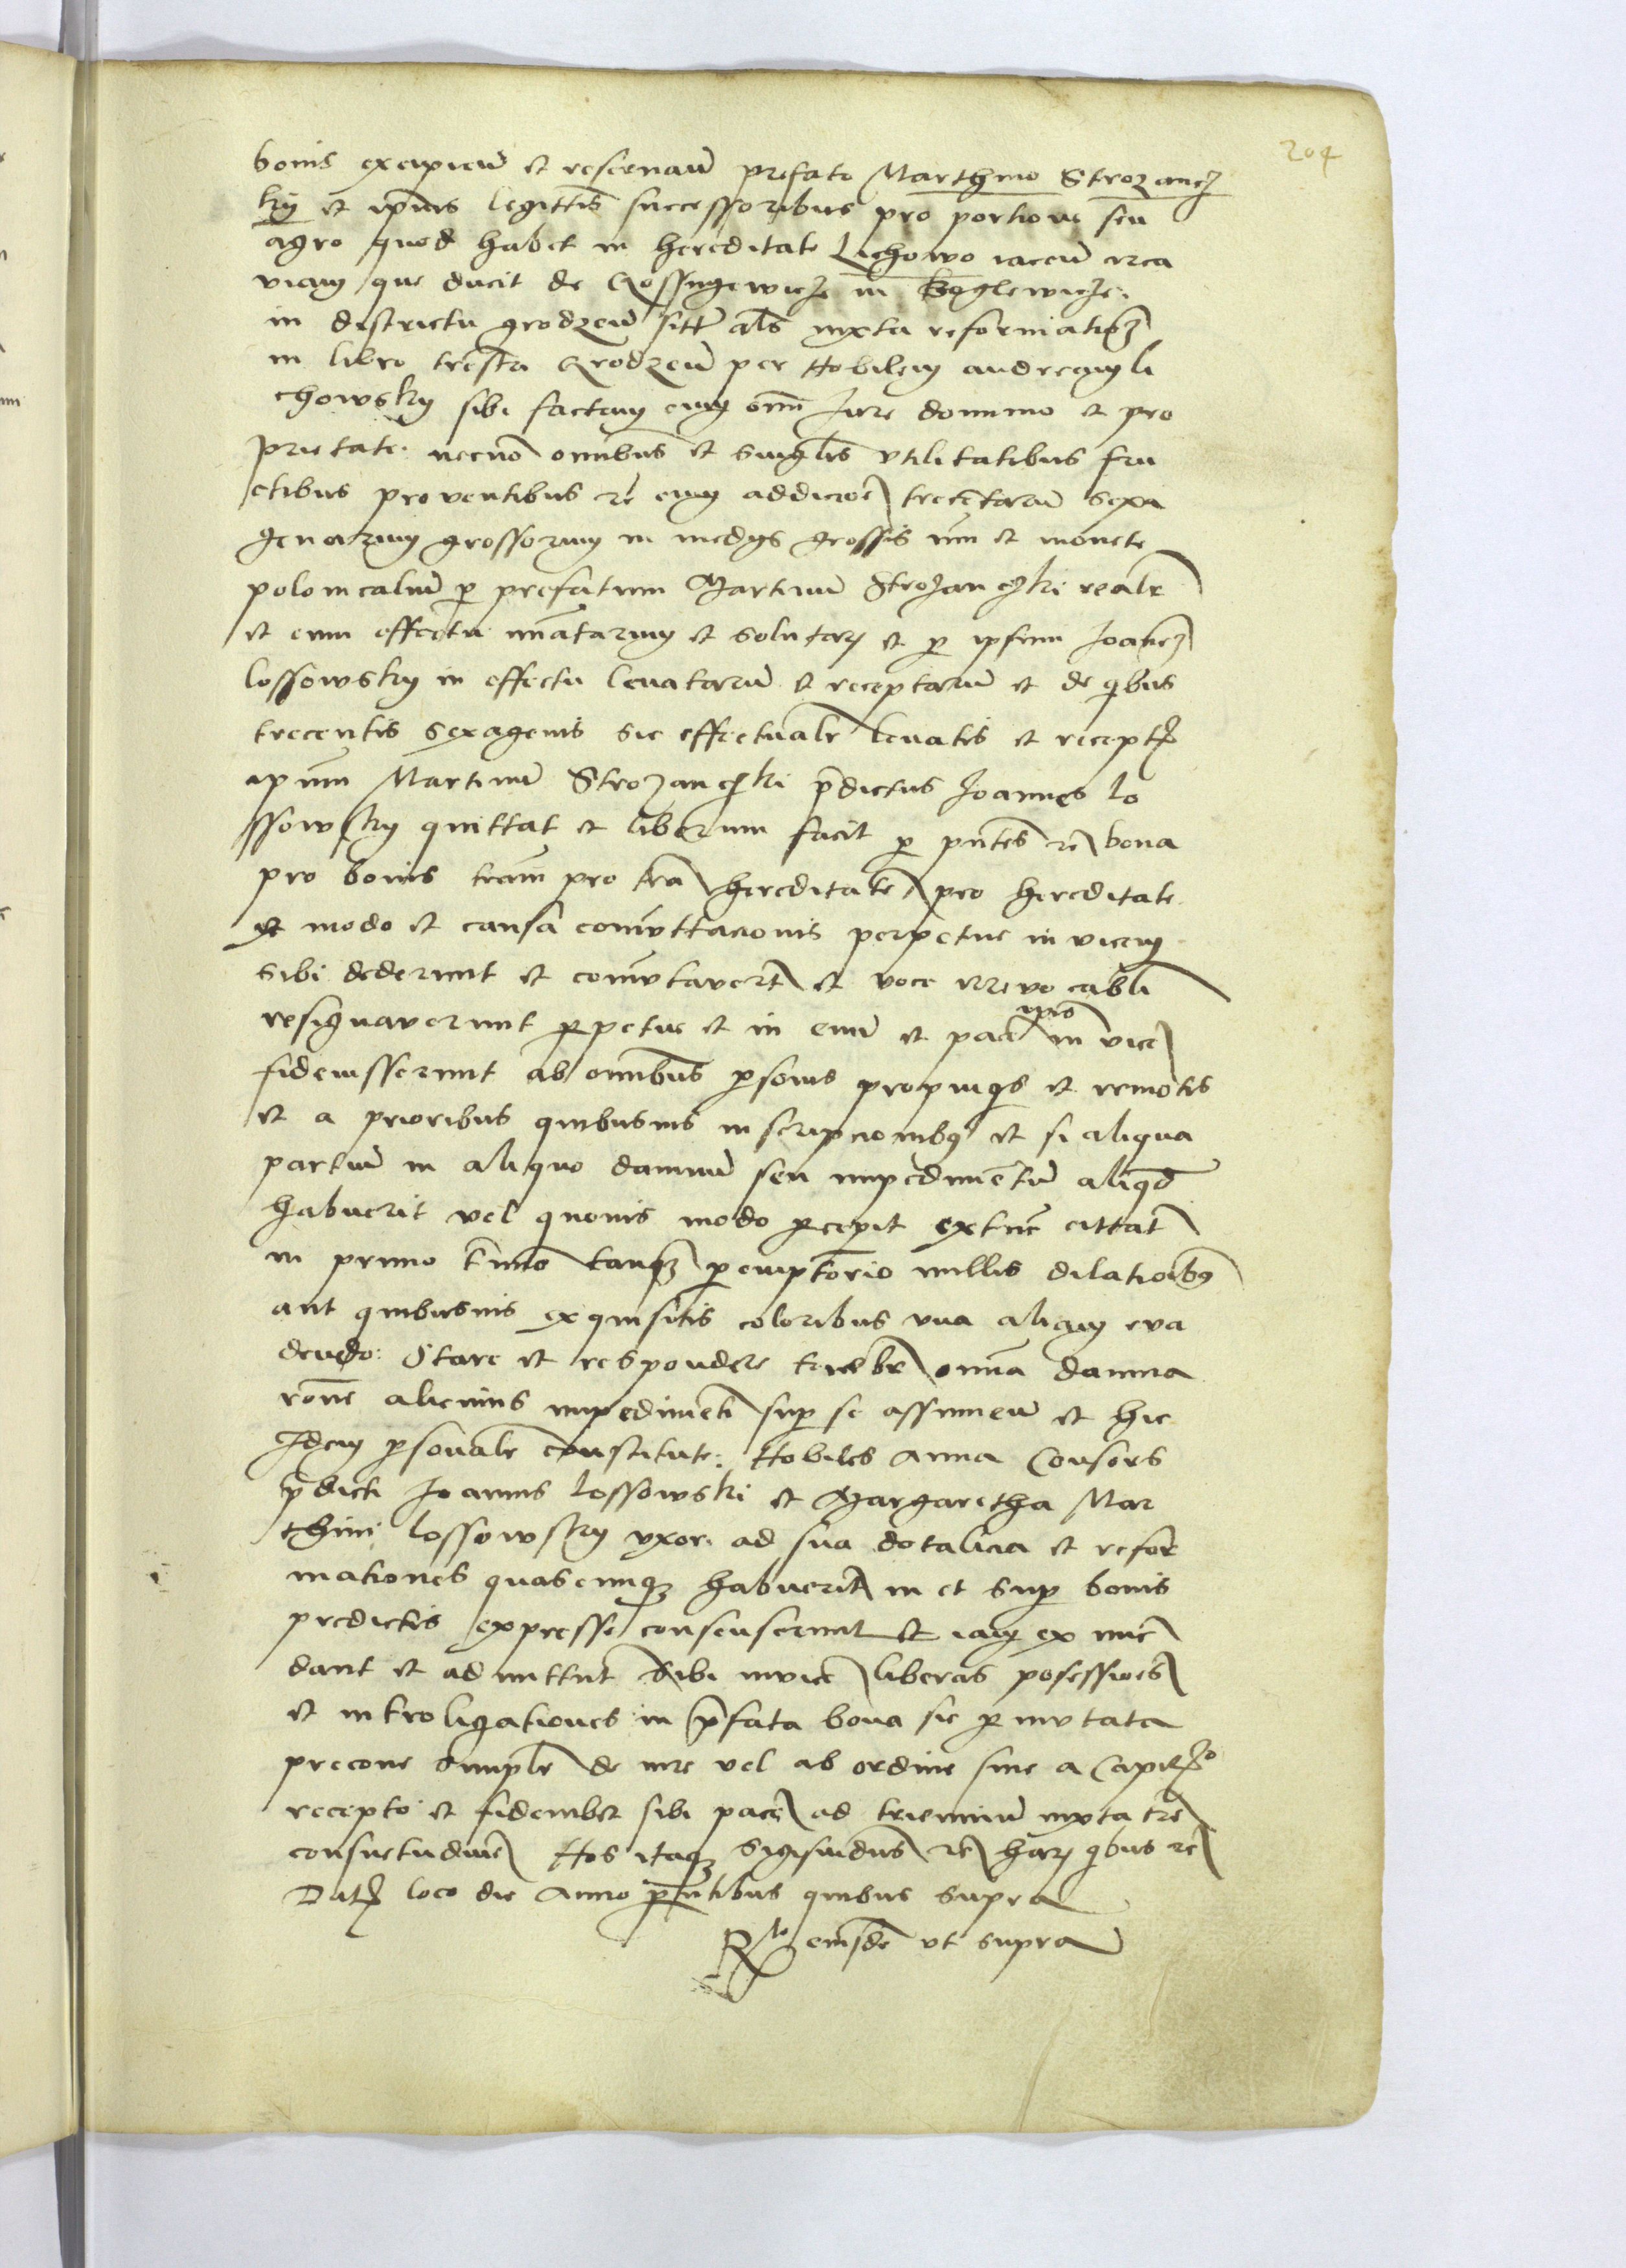 204
bonis excipieū et reservaū prefato Marthino Strozancz
ky et ipīus legittīs successoribus pro portione seu
agro quod habet in hereditate Lichowo iaceū circa
viam que ducit de in Beglewicze
in districtu grodzeū sitt̄ als iuxta reformationē
in libro trēstri Grodzeū per Nobilem andream li
chowsky sibi factam cum omī Jure dominio et pro
prietate. necnō omnibus et singlīs vtilitatibus fru
ctibus proventibus rc̄ cum addicōe trecentarū sexa
genarum grossorum in medys grossis nūi et monete
polonicaliū p̄ prefatum Martinū Strozanczki realr
et cum effectu nūatarum et solutarum et p̄ ipsum Joanē
lossowsky in effectu levatarū et receptarū et de qibus
trecentis sexagenis sic effectualr levatis et receptis
ipūm Martinū Strozanczki p̄dictus Joannes lo
ssowsky quittat et liberum facit p̄ pn̄tes rc̄ bona
pro bonis terrām pro trā hereditatē pro hereditate
modo et causa comuttacionis perpetue in vicem
sibi dederunt et comutavert̄ et voce irrevocabli
resignaverunt p̄petue et in evū et pacē ipīo in vicē
fideiusserunt ab omnibus p̄sonis propinquis et remotis
et a prioribus quibusvis inscripcionibus et si aliqua
partiū in aliquo damnū seu impedimentū aliqd
habuerit vel quovis modo p̄cepit extunc cittat̄
in primo tīnō tanqz p̄emptorio nullis dilationibus
aut quibusvis exquisitis coloribus vna aliam eva
dendo. Stare et respondere tenebr omnīa damna
rōne alicuius impedimēti sup se assumeū et hic
Idem p̄sonalr constitute: Nobiles Anna Consors
p̄dicti Joannis lossowski et Margaretha Mar
thini lossowsky vxor. ad sua dotalicia et refor
mationes quascunqz habuerit̄ in et sup bonis
predictis expresse consenserunt et iam ex nūc
dant et admittunt Sibi invicē liberas posessiones
et intro ligationes in p̄fata bona sic p̄mutata
precone simplr de iure vel ab ordine sive a Capitō
recepto et fideiubet sibi pacē ad trienniū iuxta trē
consuetudinē Nos itaqz Sigismudus rc̄ harum qibus rc̄
Datum loco die Anno p̄ntibus quibus supra
Rto eiusdē vt supra